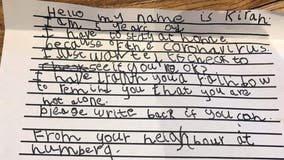 Hello my name is Kirah.
I am 5 years old
I have to stay at home
because of the coronavirus.
I just want to check to
see if you're ok?
I have drawn you rainbow
to remind you that you are
not alone.
please write back if you can.
From your neighbour at
number 9.